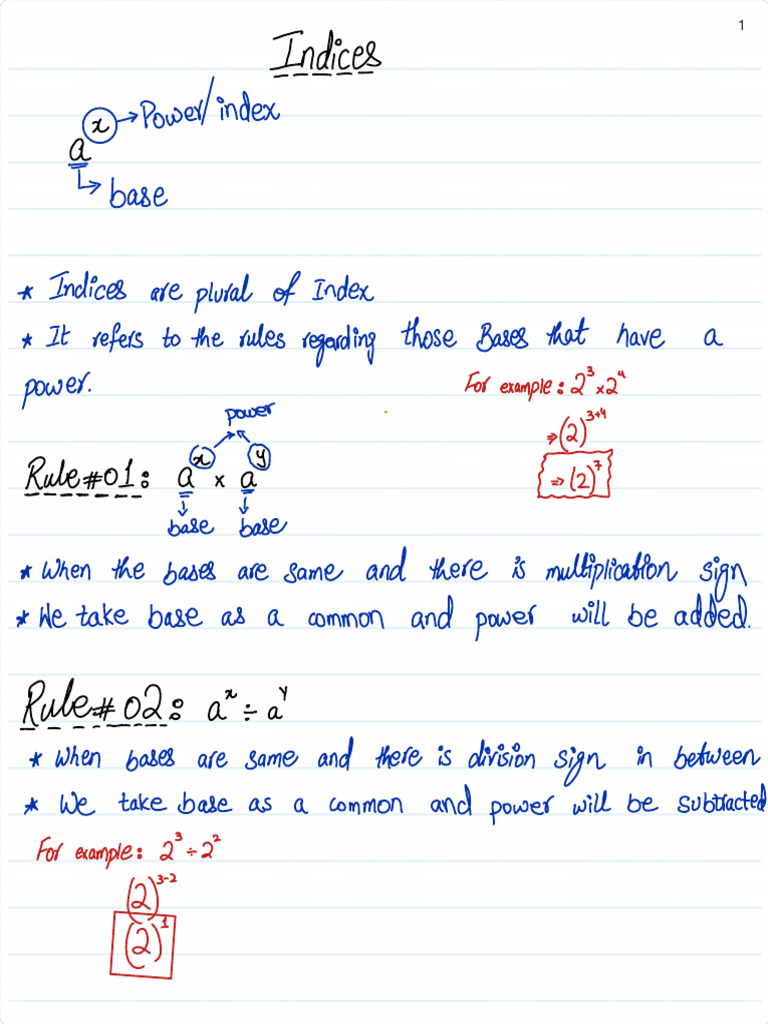 1
Indices
x → Power/index
a
base
* Indices are plural of Index
* It refers to the rules regarding those Bases that have a
power.
For example: 2³ × 2⁴
⇒ (2)³⁺⁴
⇒ (2)⁷
power
Rule#01: aˣ × aʸ
base base
* When the bases are same and there is multiplication sign
* We take base as a common and power will be added.
Rule# 02: aˣ ÷ aʸ
* When bases are same and there is division sign in between
* We take base as a common and power will be subtracted
For example: 2³ ÷ 2²
(2)³⁻²
(2)¹